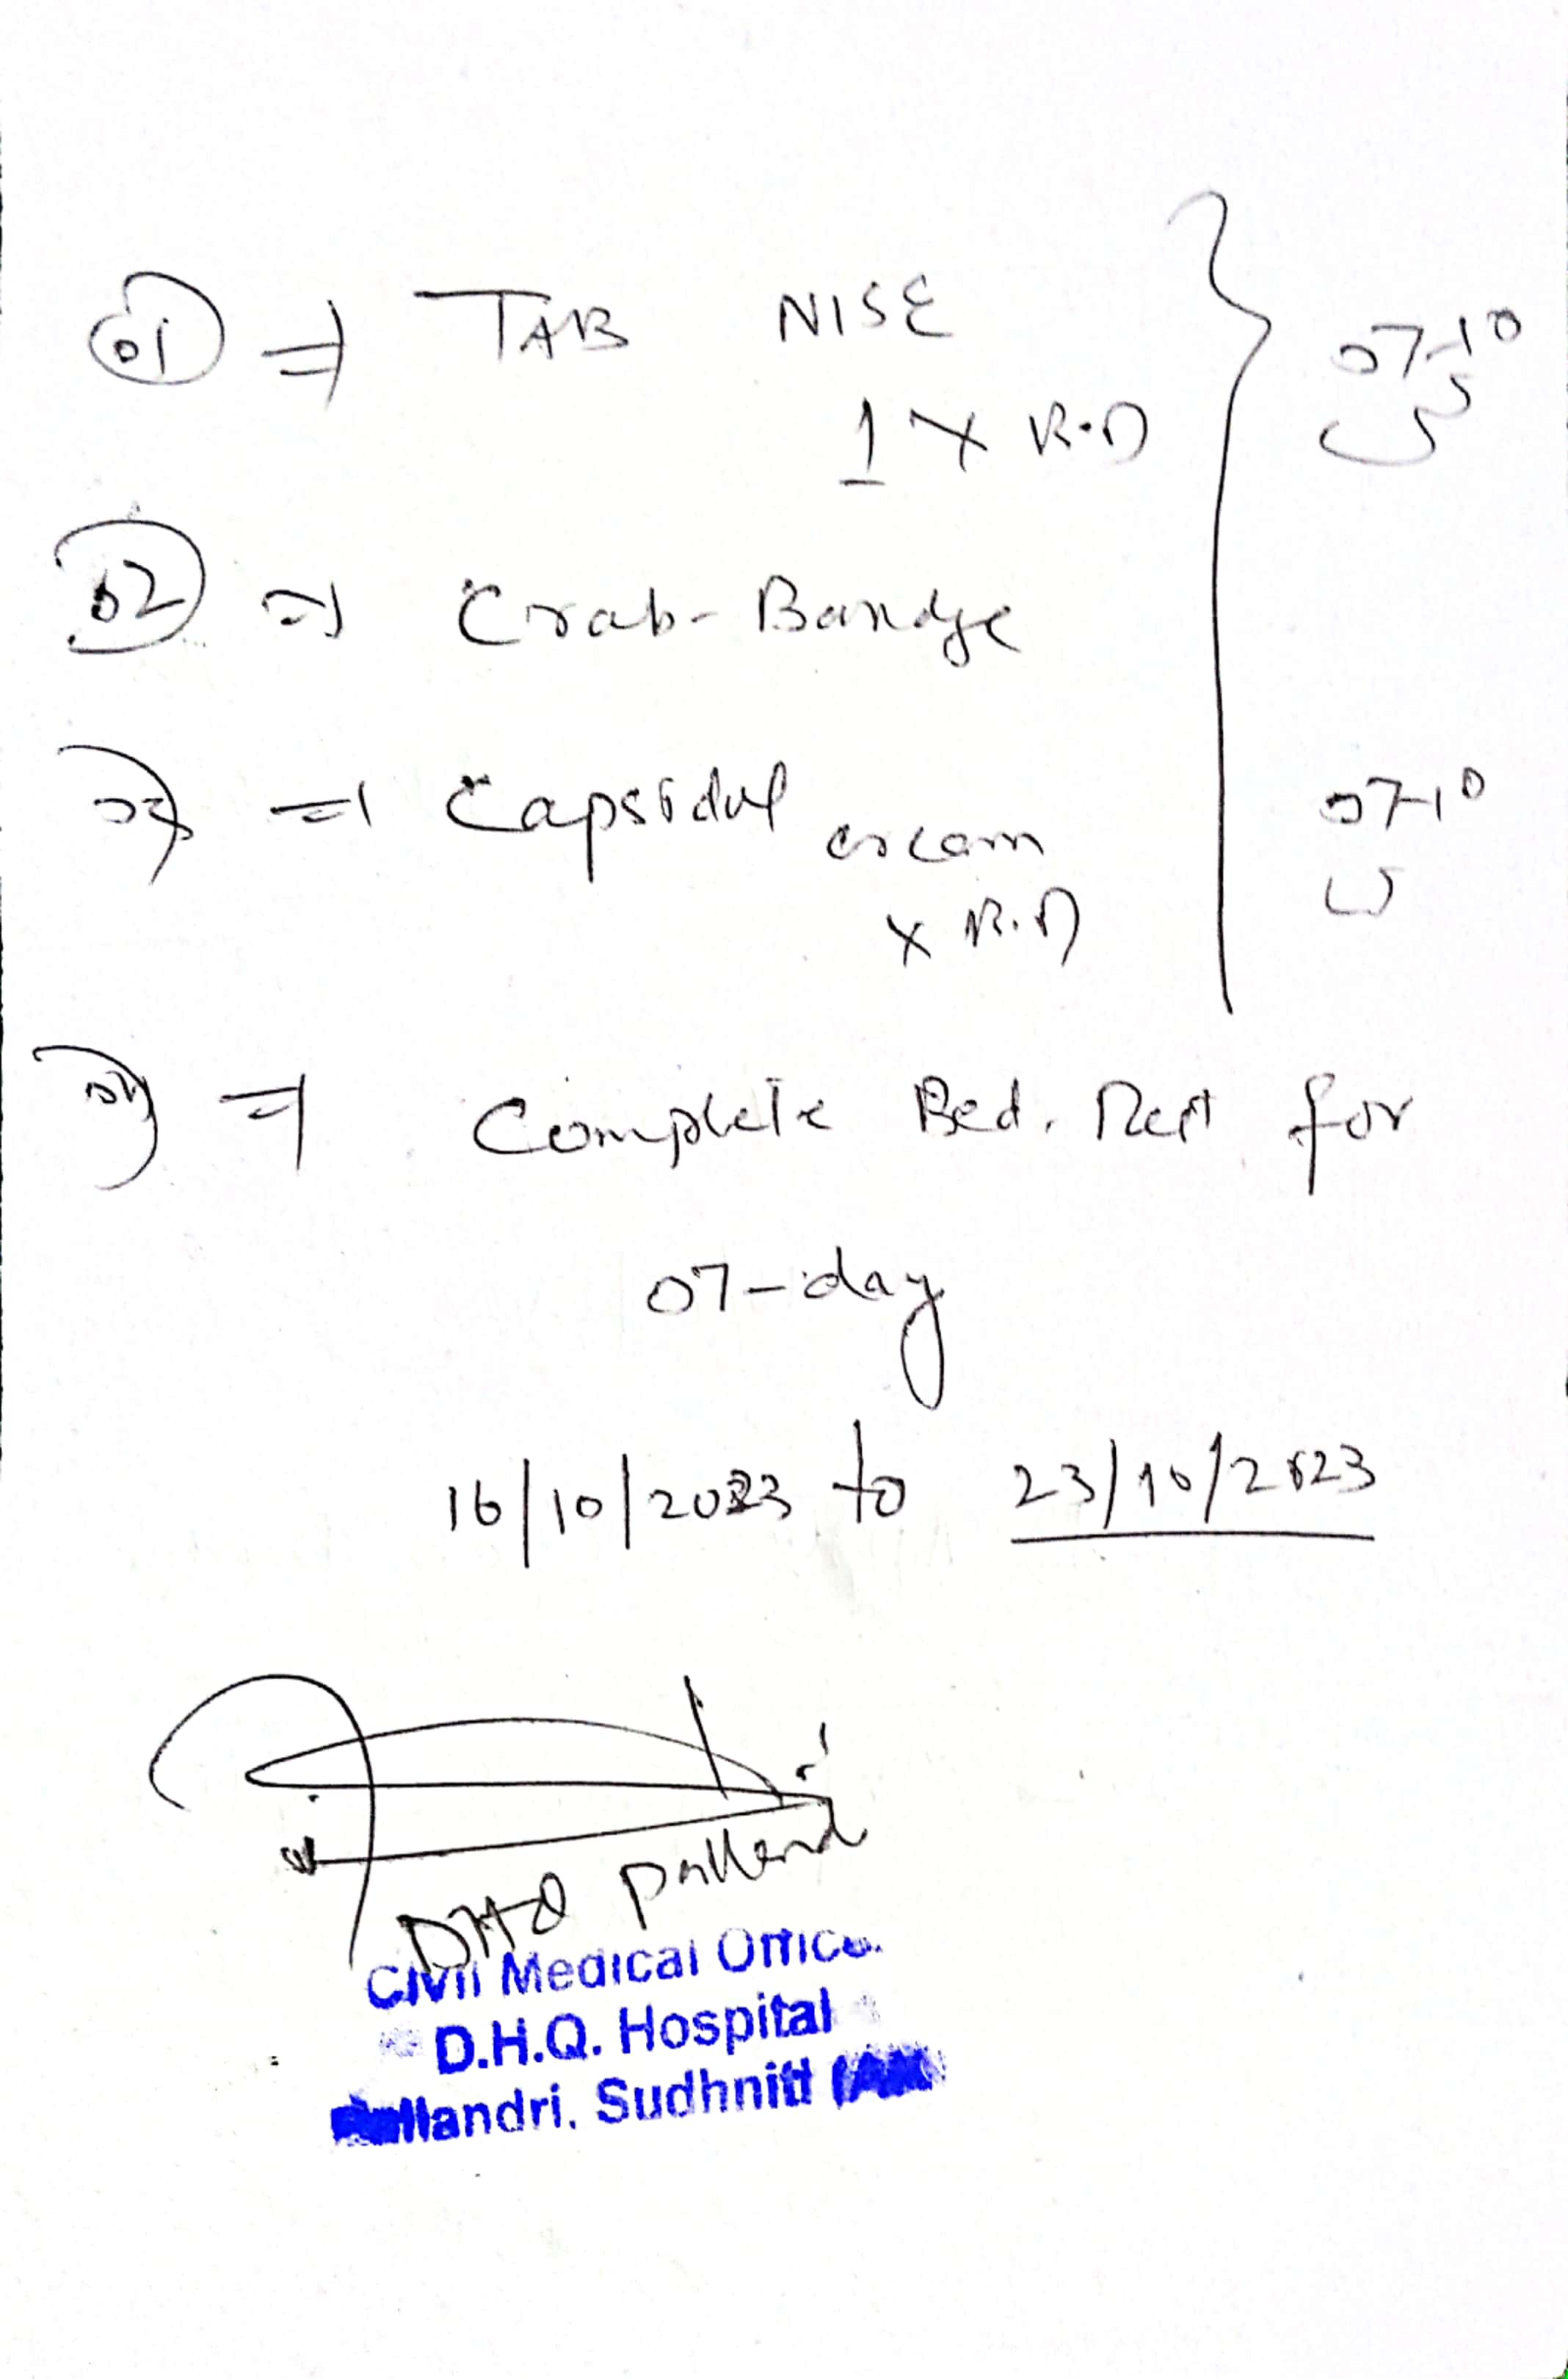 01 ⇒ TAB NISE
1 X B.D
07-10
02 ⇒ Crab-Bandge
03 ⇒ Capsidol cream
X B.D
07-10
04 ⇒ Complete Bed. Rest for
07-day
16/10/2023 to 23/10/2023
DHQ
Civil Medical Office
D.H.Q. Hospital
Pallandri. Sudhniti (AK